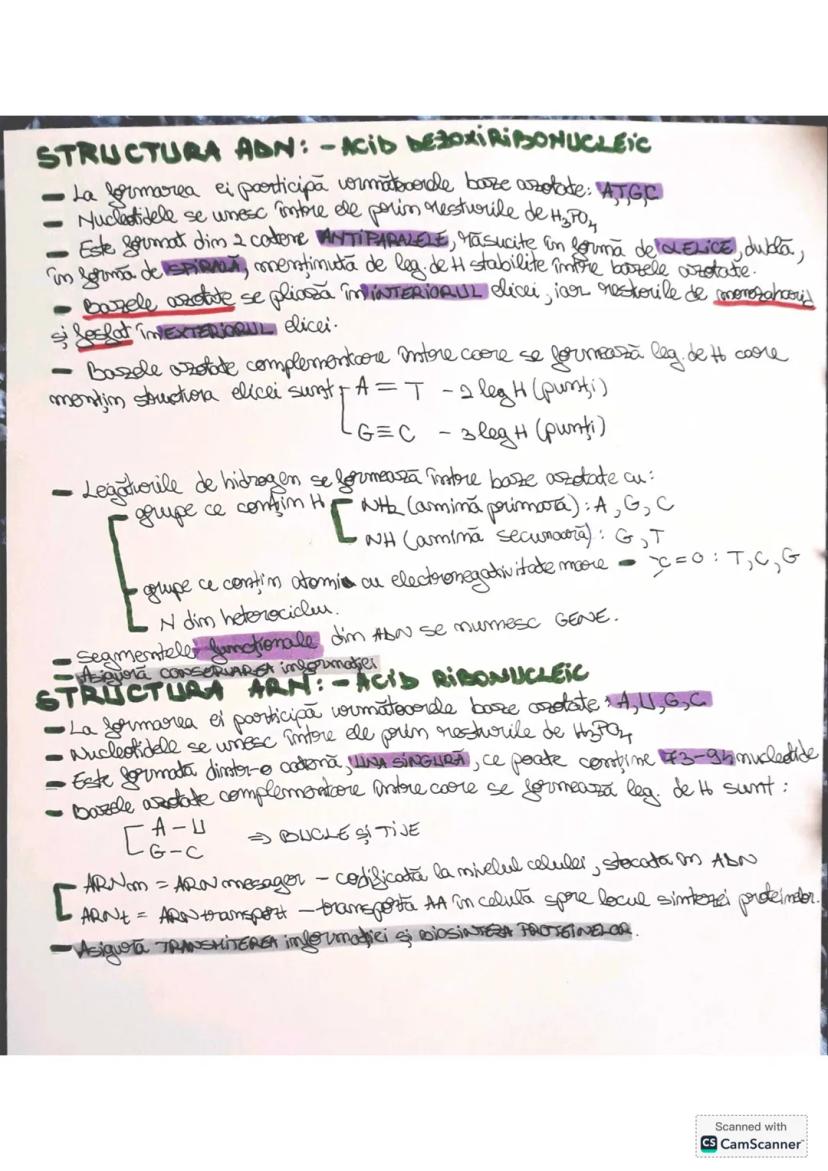 STRUCTURA ADN: - ACID DEZOXIRIBONUCLEIC
- La formarea ei participă următoarele baze azotate: A,T,G,C
- Nucleotidele se unesc între ele prin resturile de H₃PO₄
- Este format din 2 catene ANTIPARALELE, răsucite în formă de α ELICE, dublă,
în formă de SPIRALĂ, menținută de leg. de H stabilite între bazele azotate.
- Bazele azotate se pliază în INTERIORUL elicei, iar resturile de monozaharid
și fosfat în EXTERIORUL elicei.
- Bazele azotate complementare între care se formează leg. de H care
mențin structura elicei sunt A = T - 2 leg H (punți)
G ≡ C - 3 leg H (punți)
- Legăturile de hidrogen se formează între baze azotate cu:
grupe ce conțin H NH₂ (amină primară) : A, G, C
NH (amină secundară) : G, T
grupe ce conțin atomi cu electronegativitate mare - >C=O : T, C, G
N din heterociclu.
- Segmentele funcționale din ADN se numesc GENE.
- Asigură CONSERVAREA informației
STRUCTURA ARN: - ACID RIBONUCLEIC
- La formarea ei participă următoarele baze azotate: A, U, G, C
- Nucleotidele se unesc între ele prin resturile de H₃PO₄
- Este formată dintr-o catenă, UNA SINGURĂ, ce poate conține 73-94 nucleotide
- Bazele azotate complementare între care se formează leg. de H sunt :
A - U
G - C ⇒ BUCLE ȘI TIJE
ARNm = ARN mesager - codificată la nivelul celulei, stocată în ADN
ARNt = ARN transport - transportă AA în celulă spre locul sintezei proteinelor.
- Asigură TRANSMITEREA informației și BIOSINTEZA PROTEINELOR.
Scanned with
CS CamScanner